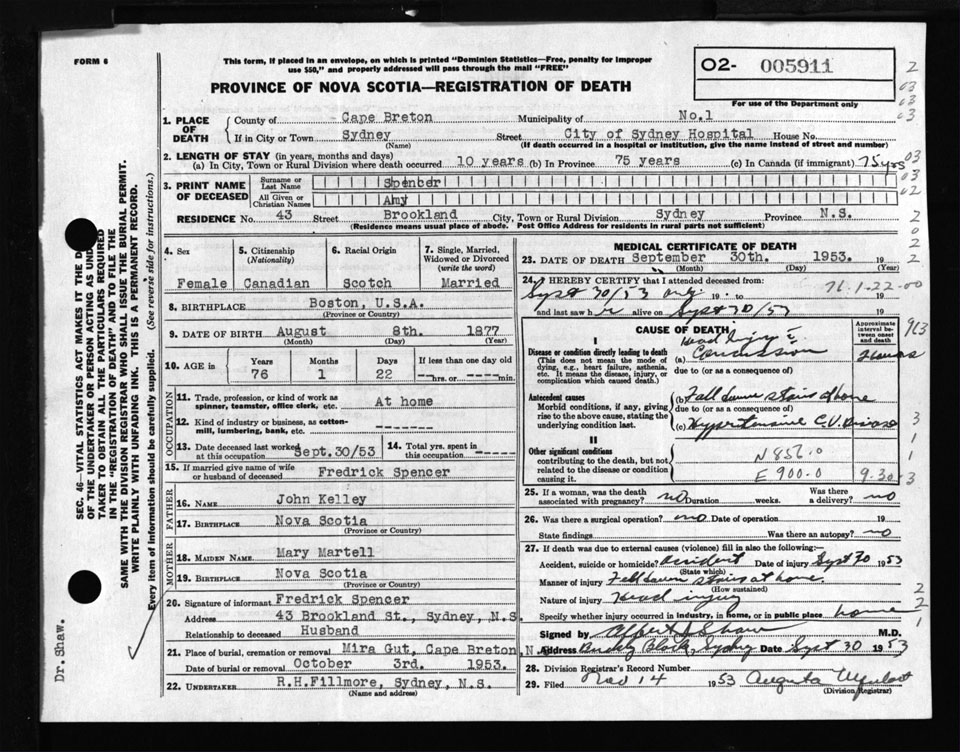 FORM 6
This form, if placed in an envelope, on which is printed "Dominion Statistics—Free, penalty for improper
use $50," and properly addressed will pass through the mail "FREE"
PROVINCE OF NOVA SCOTIA—REGISTRATION OF DEATH
O2- 005911
For use of the Department only
1. PLACE OF DEATH
County of Cape Breton Municipality of No.1
If in City or Town Sydney Street City of Sydney Hospital House No.
(Name) (If death occurred in a hospital or institution, give the name instead of street and number)
2. LENGTH OF STAY (in years, months and days)
(a) In City, Town or Rural Division where death occurred 10 years (b) In Province 75 years (c) In Canada (if immigrant) 75 yrs
3. PRINT NAME OF DECEASED
Surname or Last Name Spencer
All Given or Christian Names Amy
RESIDENCE No. 43 Street Brookland City, Town or Rural Division Sydney Province N.S.
(Residence means usual place of abode. Post Office Address for residents in rural parts not sufficient)
4. Sex
Female
5. Citizenship (Nationality)
Canadian
6. Racial Origin
Scotch
7. Single, Married, Widowed or Divorced (write the word)
Married
8. BIRTHPLACE Boston, U.S.A.
(Province or Country)
9. DATE OF BIRTH August 8th. 1877
(Month) (Day) (Year)
10. AGE in
Years Months Days If less than one day old
76 1 22 hrs. or min.
OCCUPATION
11. Trade, profession, or kind of work as spinner, teamster, office clerk, etc. At home
12. Kind of industry or business, as cotton-mill, lumbering, bank, etc. -------
13. Date deceased last worked at this occupation Sept.30/53
14. Total yrs. spent in this occupation -----
15. If married give name of wife or husband of deceased Fredrick Spencer
FATHER
16. NAME John Kelley
17. BIRTHPLACE Nova Scotia
(Province or Country)
MOTHER
18. MAIDEN NAME Mary Martell
19. BIRTHPLACE Nova Scotia
(Province or Country)
20. Signature of informant Fredrick Spencer
Address 43 Brookland St., Sydney, N.S
Relationship to deceased Husband
21. Place of burial, cremation or removal Mira Gut, Cape Breton, N.
Date of burial or removal October 3rd. 1953.
22. UNDERTAKER R.H.Fillmore, Sydney, N.S.
(Name and address)
MEDICAL CERTIFICATE OF DEATH
23. DATE OF DEATH September 30th. 1953.
(Month) (Day) (Year)
24. I HEREBY CERTIFY that I attended deceased from
Sept 30/53 only 19 to 19
76.1.22-00
and last saw her alive on Sept 30/53 19
CAUSE OF DEATH
Approximate interval between onset and death
I
Disease or condition directly leading to death
(This does not mean the mode of dying, e.g., heart failure, asthenia, etc. It means the disease, injury, or complication which caused death.)
Head injury c
(a) Concussion
due to (or as a consequence of)
Antecedent causes
Morbid conditions, if any, giving rise to the above cause, stating the underlying condition last.
(b) Fall down stairs at home
due to (or as a consequence of)
(c) Hypertensive C.V. Disease
II
Other significant conditions
contributing to the death, but not related to the disease or condition causing it.
N 856.0
E 900.0 9.30
25. If a woman, was the death associated with pregnancy? no Duration weeks. Was there a delivery? no
26. Was there a surgical operation? no Date of operation 19
State findings Was there an autopsy? no
27. If death was due to external causes (violence) fill in also the following:—
Accident, suicide or homicide? Accident Date of injury Sept 30 1953
(State which)
Manner of injury Fell down stairs at home
(How sustained)
Nature of injury Head injury
Specify whether injury occurred in industry, in home, or in public place home
Signed by M.D.
Address Block, Sydney Date Sept 30 1953
28. Division Registrar's Record Number
29. Filed Nov 14 1953 Augusta
(Division Registrar)
SEC. 46—VITAL STATISTICS ACT MAKES IT THE D
OF THE UNDERTAKER OR PERSON ACTING AS UND
TAKER TO OBTAIN ALL THE PARTICULARS REQUIRED
IN THE "REGISTRATION OF DEATH" AND TO FILE THE
SAME WITH THE DIVISION REGISTRAR WHO SHALL ISSUE THE BURIAL PERMIT.
WRITE PLAINLY WITH UNFADING INK. THIS IS A PERMANENT RECORD.
Every item of information should be carefully supplied. (See reverse side for instructions.)
Dr. Shaw.
2
03
03
03
03
03
02
2
0
2
2
963
3
1
1
3
2
2
1